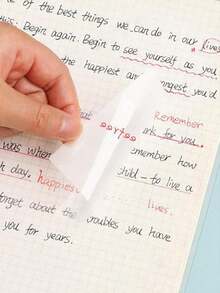 of the best things we can do in our lives
this: Begin again. Begin to see yourself as you
the happiest and youngest you'd
Remember
at ark for you.
was when member how
h day. happiest child - to live a
lives.
forget about the troubles you have
you for years.